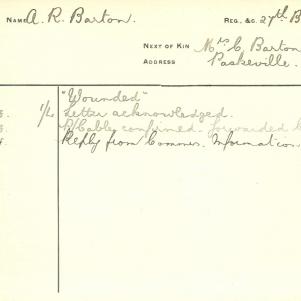 NAME A. R. Barton. REG. &C. 27th B
NEXT OF KIN Mrs C Barton
ADDRESS Paskeville.
"Wounded"
1/L Letter acknowledged.
Cables confirmed. forwarded
Reply from Commr. Information